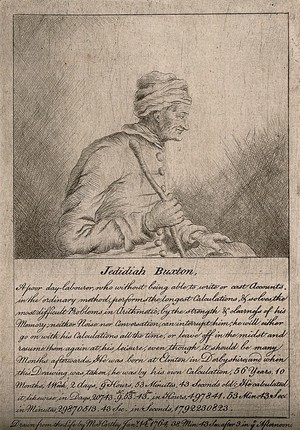 Jedidiah Buxton,
A poor day-labourer, who without being able to write or cast Accounts,
in the ordinary method, performs the longest Calculations, & solves the
most difficult Problems in Arithmetic; by the strength & clearness of his
Memory; neither Noise nor Conversation, can interrupt him; he will either
go on with his Calculations all the time, or leave off in the midst and
resume them again at his leisure; even though it should be many
Months afterwards. He was born at Elmton, in Derbyshire; and when
this Drawing was taken, he was by his own Calculation; 56 Years, 10
Months, 1 Week, 2 days, 9 Hours, 53 Minutes, 43 Seconds old; He calculated
it, likewise, in Days, 20743. in Hours, 497841. 53 Min. 43 Sec.
in Minutes, 29870513. 43 Sec. in Seconds, 1792230823.
Drawn from the Life by Hartley Jan. 38 Min. 43 Sec. after 3 in Afternoon.